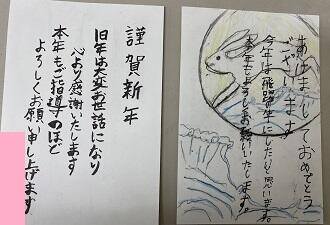 謹賀新年
旧年は大変お世話になり
心より感謝いたします
本年もご指導のほど
よろしくお願い申し上げます
あけましておめでとう
ございます。
今年は飛躍の年にしたいと思います。
今年もよろしくお願いいたします。